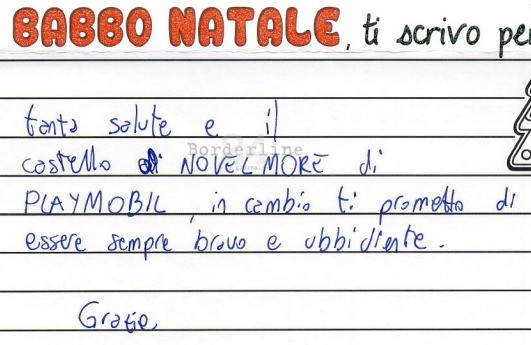 BABBO NATALE, ti scrivo per
tanta salute e il
Borderline
castello di NOVELMORE di
PLAYMOBIL, in cambio ti prometto di
essere sempre bravo e ubbidiente.
Grazie,